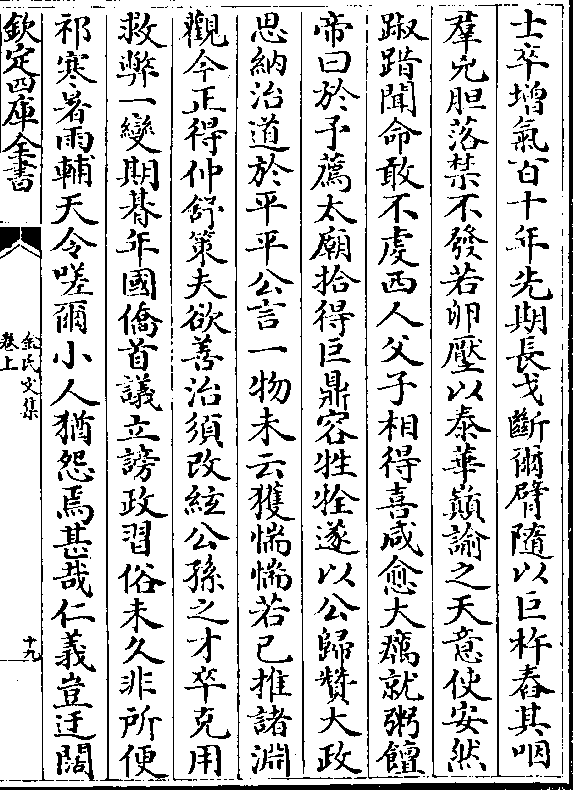 士卒增氣百十年先期長戈斷爾臂隨以巨杵舂其咽
羣兇胆落禁不發若卵壓以泰華巔諭之天意使安然
踧踖聞命敢不虔西人父子相得喜咸愈大癘就粥饘
帝曰於予薦太廟拾得巨鼎容牲牷遂以公歸贊大政
思納治道於平平公言一物未云獲惴惴若已推諸淵
觀今正得仲舒策夫欲善治須改絃公孫之才卒克用
救弊一變期朞年國僑首議立謗政習俗未久非所便
祁寒暑雨輔天令嗟爾小人猶怨焉甚哉仁義豈迂闊
欽定四庫全書
金氏文集
卷上
十九